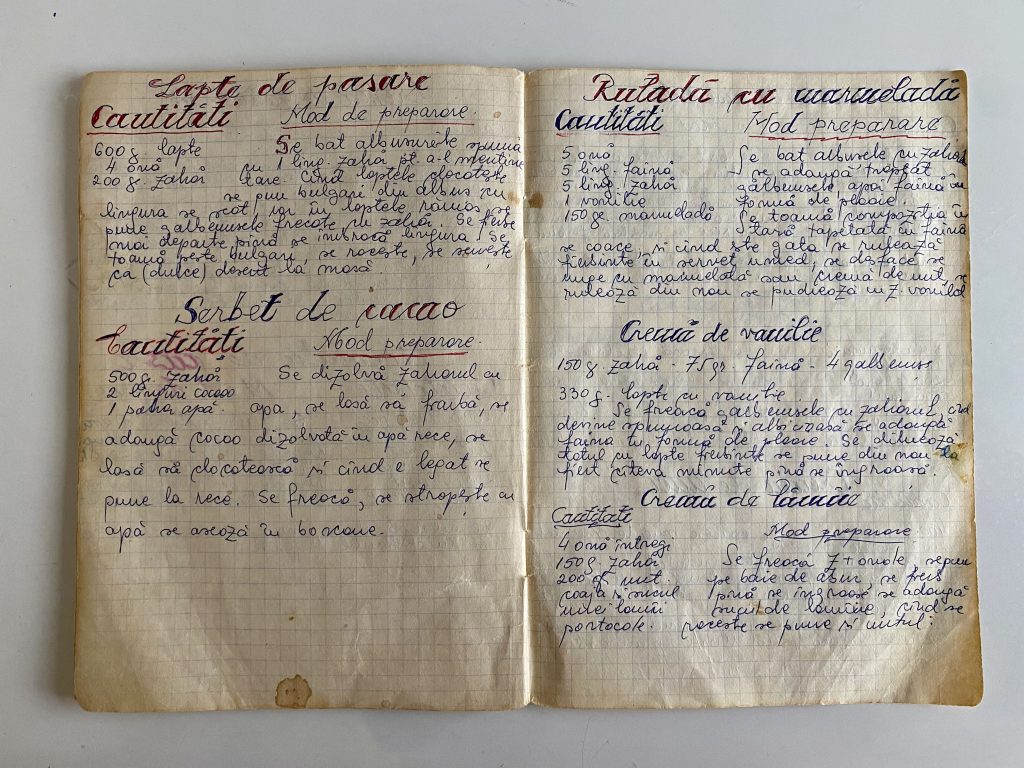 Lapte de pasare
Cantități Mod de preparare.
600 g. lapte Se bat albusurile spumă
4 ouă cu 1 ling. zahăr pt. a-l menține
200 g. zahăr tare. Cînd laptele clocotește
se pun bulgari din albus cu
lingura se scot iar în laptele rămas se
pune galbenusele frecate cu zahăr. Se fierbe
mai departe pînă se îmbracă lingura. Se
toarnă peste bulgari, se răcește, se servește
ca (dulce) desert la masă.
Serbet de cacao
Cantități Mod preparare.
500 g. zahăr Se dizolvă zaharul cu
2 linguri cacao
1 pahar apă. apa, se lasă să fiarbă, se
adaugă cacao dizolvată în apă rece, se
lasă să clocotească și cînd e legat se
pune la rece. Se freacă, se stropește cu
apă se asează în borcane.
Ruladă cu marmeladă
Cantități Mod preparare
5 ouă Se bat albusele cu zahăr
5 ling. faină se adaugă treptat
5 ling. zahăr gălbenusele apă faină în
1 vanilie formă de ploaie.
150 gr. marmeladă Se toarnă compoziția în
tavă tapetată cu faină
se coace, și cînd este gata se rulează
fierbinte în servet umed, se desface se
unge cu marmeladă sau cremă de unt, se
rulează din nou se pudrează cu z. vanilat
Cremă de vanilie
150 g. zahăr - 75 gr. faină - 4 galbenus
330 g. lapte cu vanilie.
Se freacă galbenusele cu zaharul, cînd
devine spumoasă și albicioasă se adaugă
faina în formă de ploaie. Se diluează
totul cu lapte fierbinte se pune din nou la
fiert cîteva minute pînă se îngroasă.
Cremă de lămîie
Cantități
Mod preparare
4 ouă întregi
150 g. zahăr Se freacă z + ouăle, se pun
200 gr. unt. pe baie de abur, se fierb
coaja și sucul pînă se îngroașe, se adaugă
unei lamîi sucul de lamîie, cînd se
portocale. răcește se pune și untul.